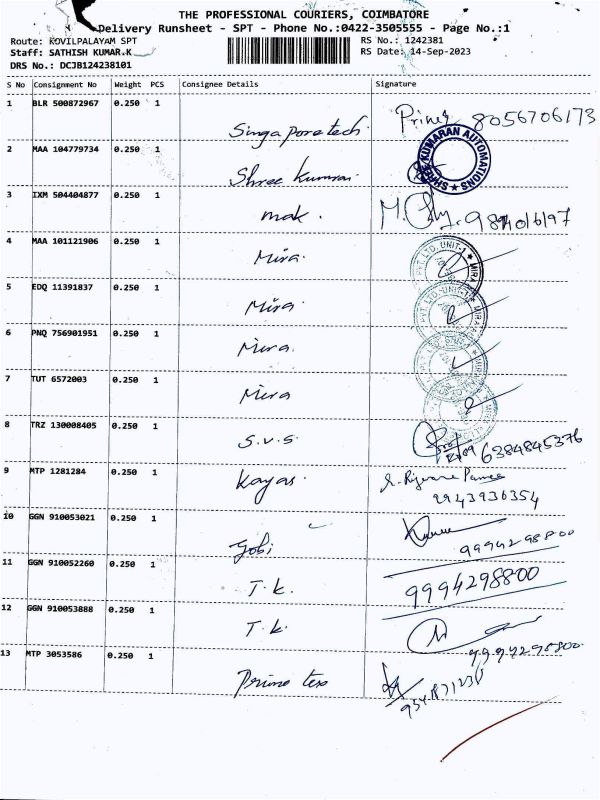 THE PROFESSIONAL COURIERS, COIMBATORE
Delivery Runsheet - SPT - Phone No.:0422-3505555 - Page No.:1
Route: KOVILPALAYAM SPT RS No.: 1242381
Staff: SATHISH KUMAR.K RS Date: 14-Sep-2023
DRS No.: DCJB124238101
S No Consignment No Weight PCS Consignee Details Signature
1 BLR 500872967 0.250 1 Singapore tech 8056706173
2 MAA 104779734 0.250 1 Shree kumran SHREE KUMARAN AUTOMATIONS
3 IXM 504404877 0.250 1 mak.
4 MAA 101121906 0.250 1 Mira. PVT. LTD. UNIT-1 MIRA
5 EDQ 11391837 0.250 1 Mira
6 PNQ 756901951 0.250 1 Mira.
7 TUT 6572003 0.250 1 Mira
8 TRZ 130008405 0.250 1 S.V.S. 6384845376
9 MTP 1281284 0.250 1 Kayas
9943936354
10 GGN 910053021 0.250 1 Gobi 9994298800
11 GGN 910052260 0.250 1 T.k. 9994298800
12 GGN 910053888 0.250 1 T.k. 9994298800
13 MTP 3053586 0.250 1 Prime tex